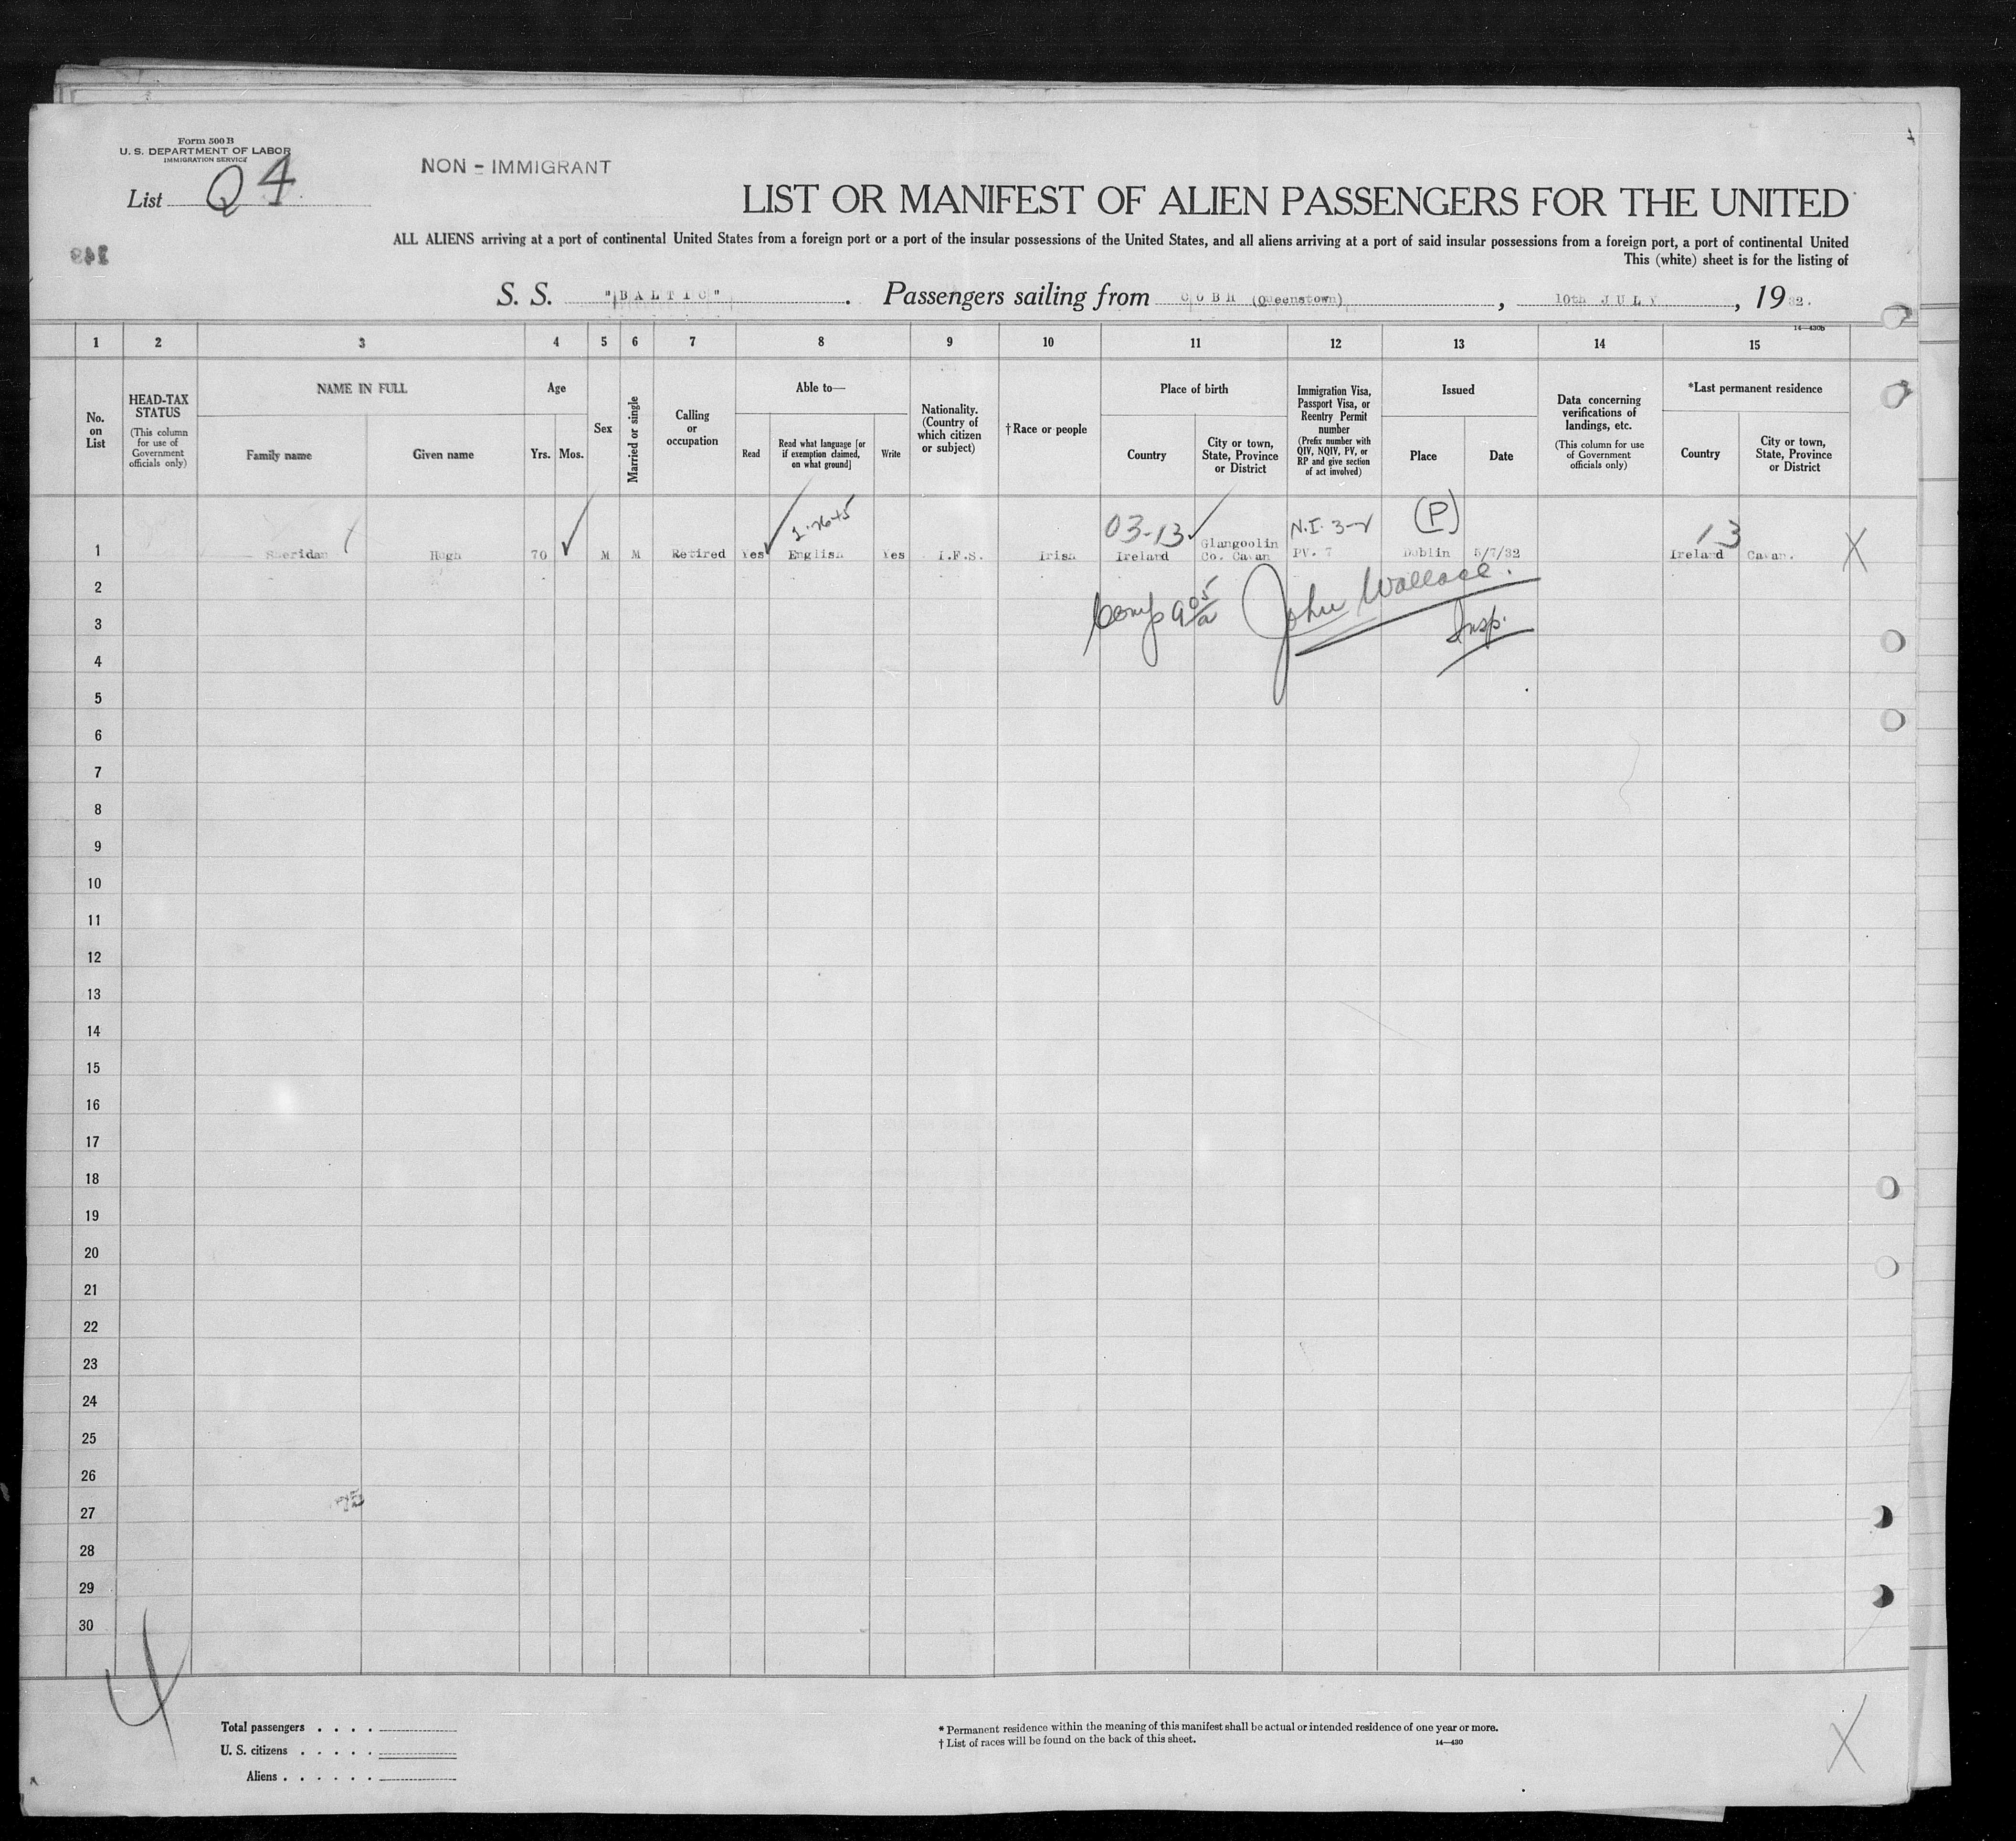 Form 500 B
U. S. DEPARTMENT OF LABOR
IMMIGRATION SERVICE
List Q 4
NON - IMMIGRANT
LIST OR MANIFEST OF ALIEN PASSENGERS FOR THE UNITED
ALL ALIENS arriving at a port of continental United States from a foreign port or a port of the insular possessions of the United States, and all aliens arriving at a port of said insular possessions from a foreign port, a port of continental United
This (white) sheet is for the listing of
S. S. "BALTIC". Passengers sailing from COBH (Queenstown), 10th JULY, 1932.
14—430b
1 2 3 4 5 6 7 8 9 10 11 12 13 14 15
No. on List
HEAD-TAX STATUS
(This column for use of Government officials only)
NAME IN FULL
Family name
Given name
Age
Yrs. Mos.
Sex
Married or single
Calling or occupation
Able to—
Read
Read what language [or if exemption claimed, on what ground]
Write
Nationality. (Country of which citizen or subject)
†Race or people
Place of birth
Country
City or town, State, Province or District
Immigration Visa, Passport Visa, or Reentry Permit number
(Prefix number with QIV, NQIV, PV, or RP and give section of act involved)
Issued
Place
Date
Data concerning verifications of landings, etc.
(This column for use of Government officials only)
*Last permanent residence
Country
City or town, State, Province or District
03-13 N.I. 3-2 (P) 13
1 Sheridan Hugh 70 M M Retired Yes English Yes I.F.S. Irish Ireland Glangoolin Co. Cavan PV. 7 Dublin 5/7/32 Ireland Cavan. X
2
John Wallace.
3
Insp.
4
5
6
7
8
9
10
11
12
13
14
15
16
17
18
19
20
21
22
23
24
25
26
27
28
29
30
Total passengers . . . .
U. S. citizens . . . . .
Aliens . . . . . .
* Permanent residence within the meaning of this manifest shall be actual or intended residence of one year or more.
† List of races will be found on the back of this sheet.
14—430
X